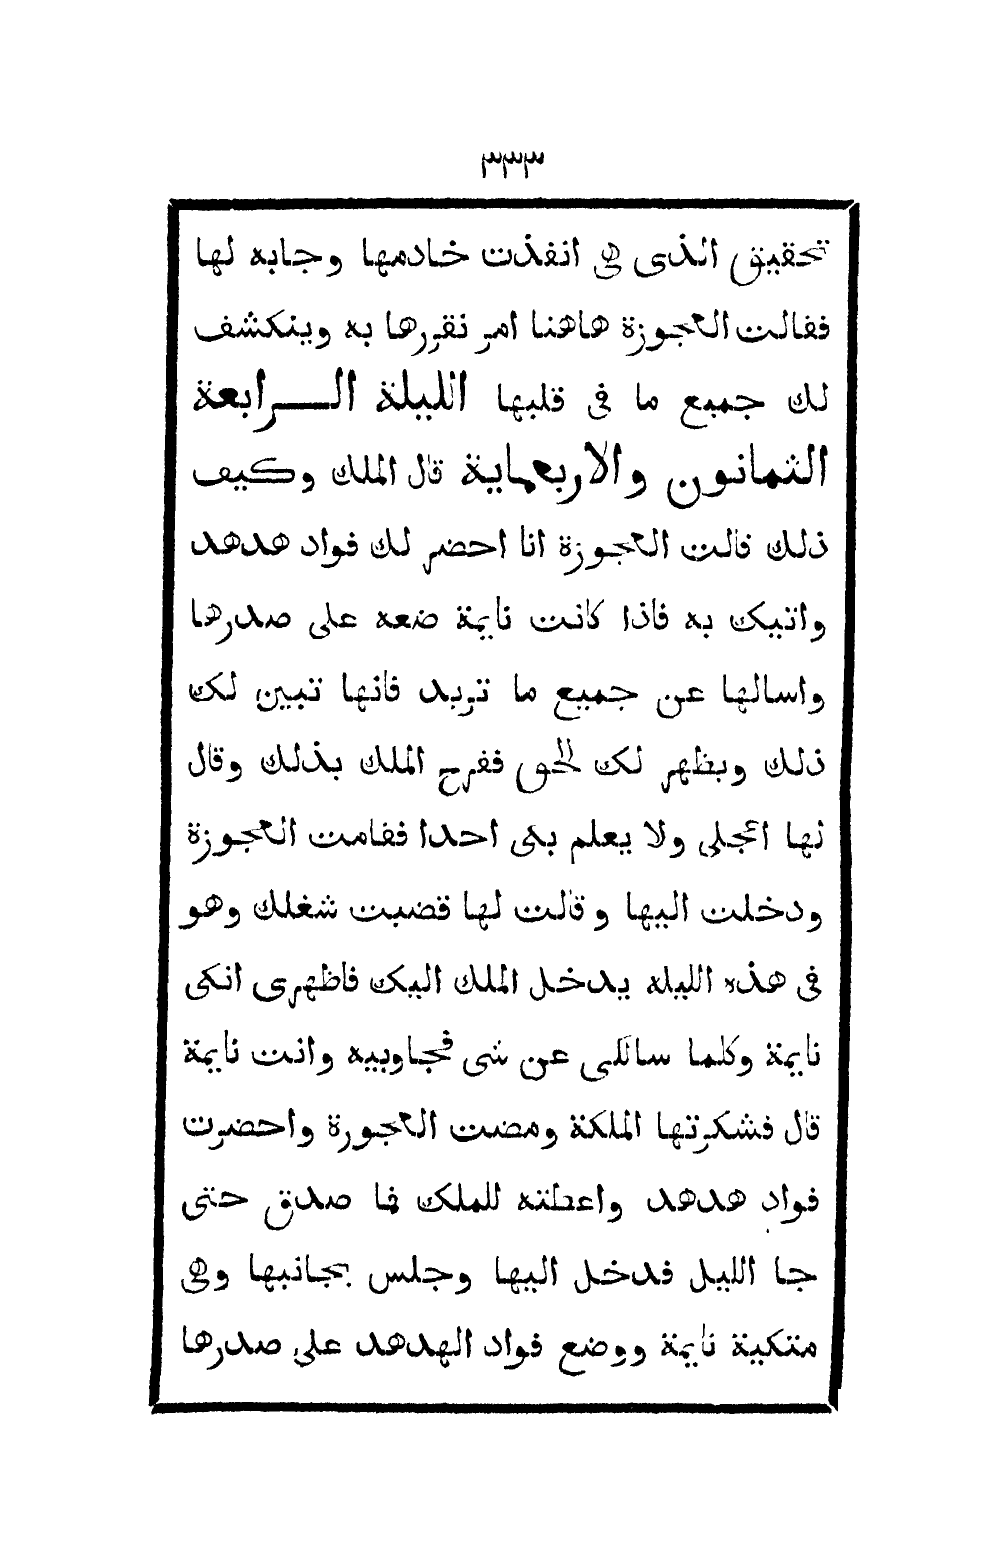 ٣٣٣
تحقيق الذى هى انفذت خادمها وجابه لها
فقالت العجوزة هاهنا امر نقررها به وينكشف
لك جميع ما فى قلبها الليلة الـــرابعة
الثمانون والاربعماية قال الملك وكيف
ذلك قالت العجوزة انا احضر لك فواد هدهد
واتيك به فاذا كانت نايمة ضعه على صدرها
واسالها عن جميع ما تريد فانها تبين لك
ذلك ويظهر لك الحق ففرح الملك بذلك وقال
لها اعجلى ولا يعلم بكى احدا فقامت العجوزة
ودخلت اليها وقالت لها قضيت شغلك وهو
فى هذه الليله يدخل الملك اليك فاظهرى انكى
نايمة وكلما سائلكى عن شى فجاوبيه وانت نايمة
قال فشكرتها الملكة ومضت العجوزة واحضرت
فواد هدهد واعطته للملك فما صدق حتى
جا الليل فدخل اليها وجلس بجانبها وهى
متكية نايمة ووضع فواد الهدهد على صدرها